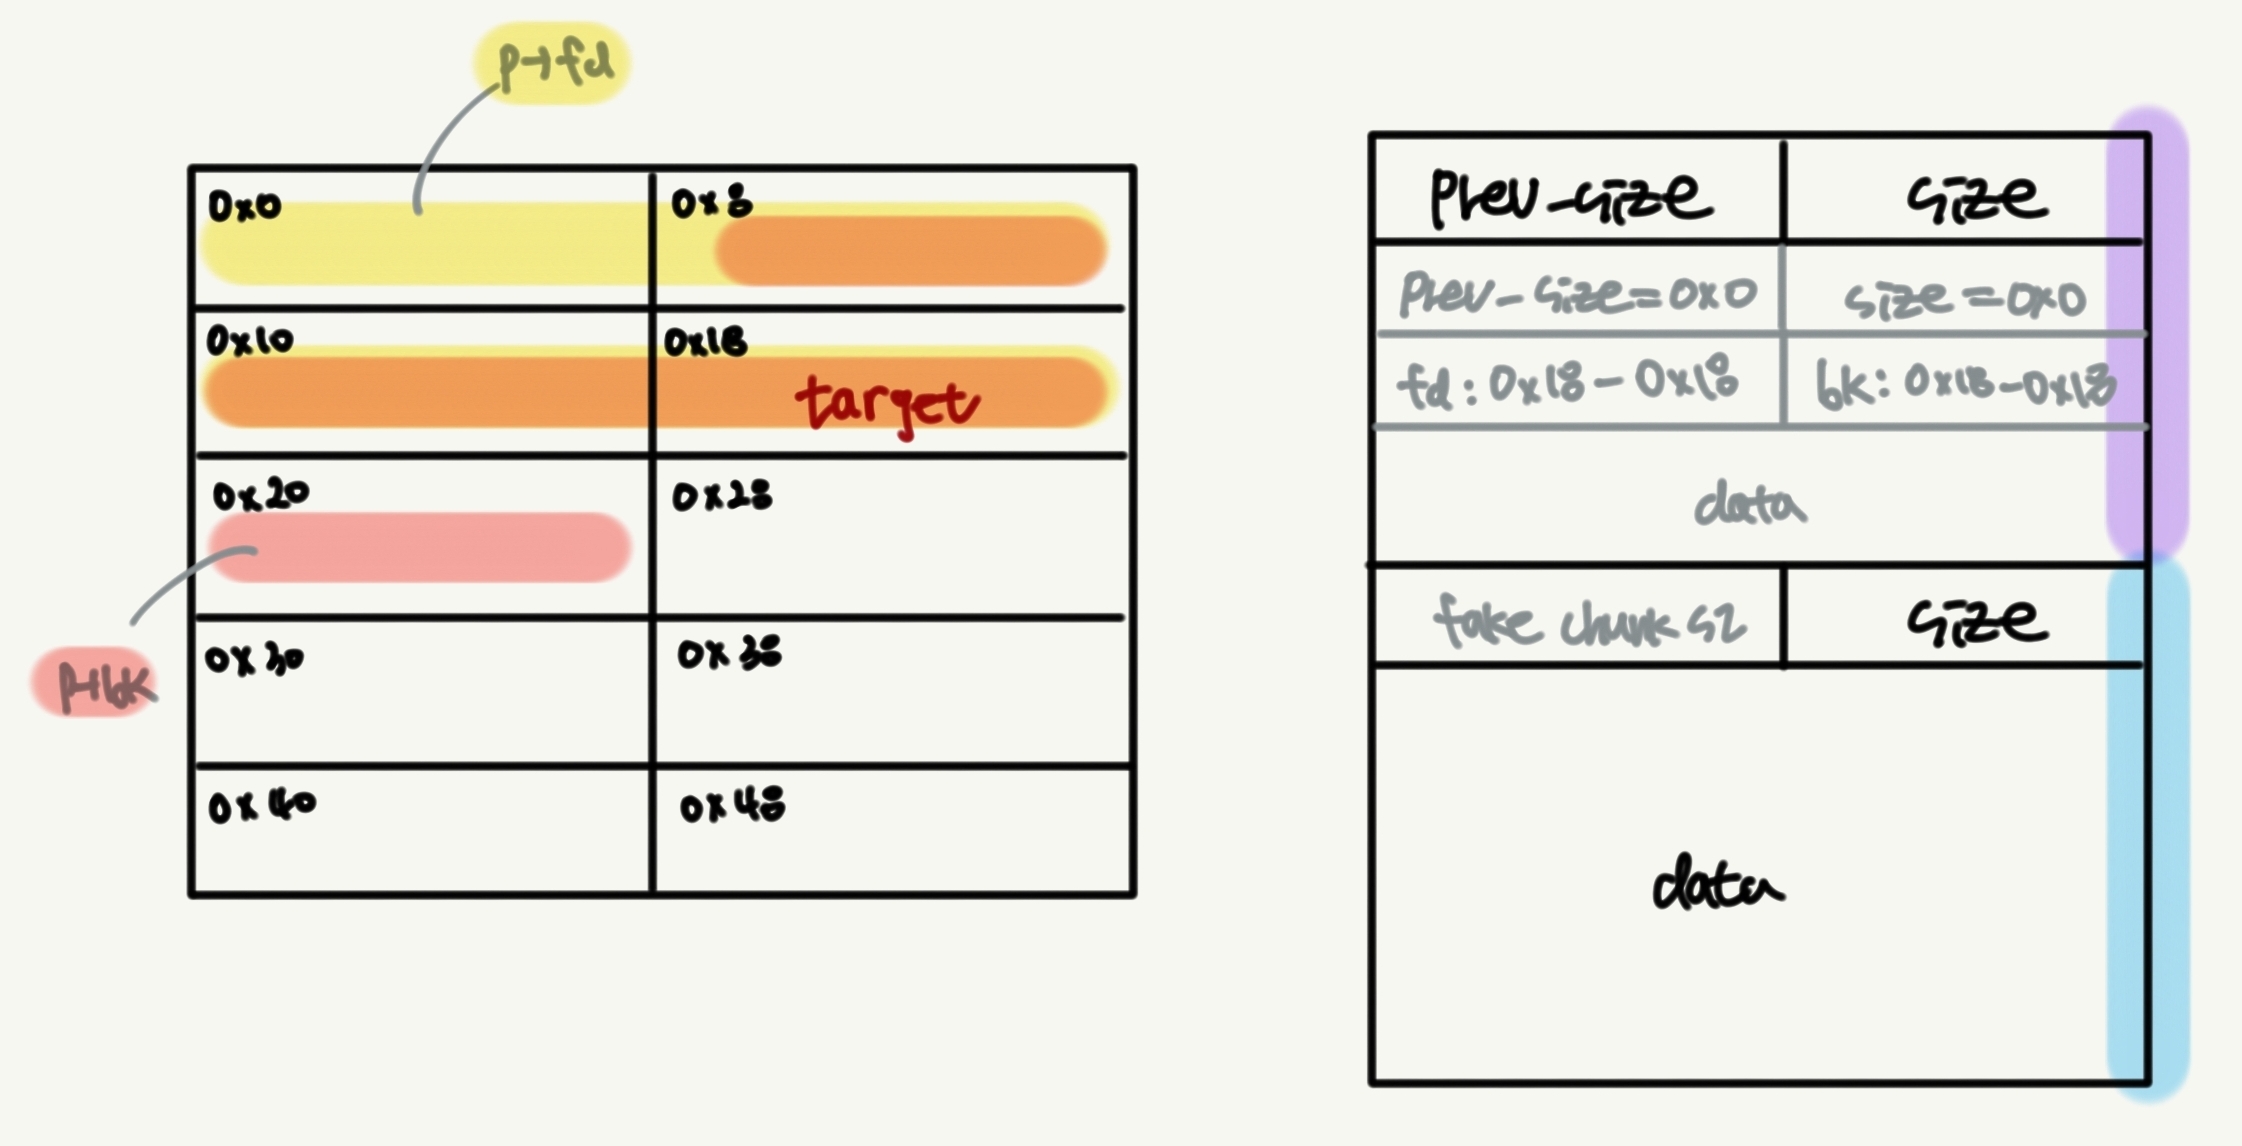 p→fd
0x0 0x8
0x10 0x18
target
0x20 0x28
p→bk
0x30 0x38
0x40 0x48
Prev_size size
Prev_size=0x0 size=0x0
fd: 0x18-0x18 bk: 0x18-0x18
data
fake chunk sz size
data